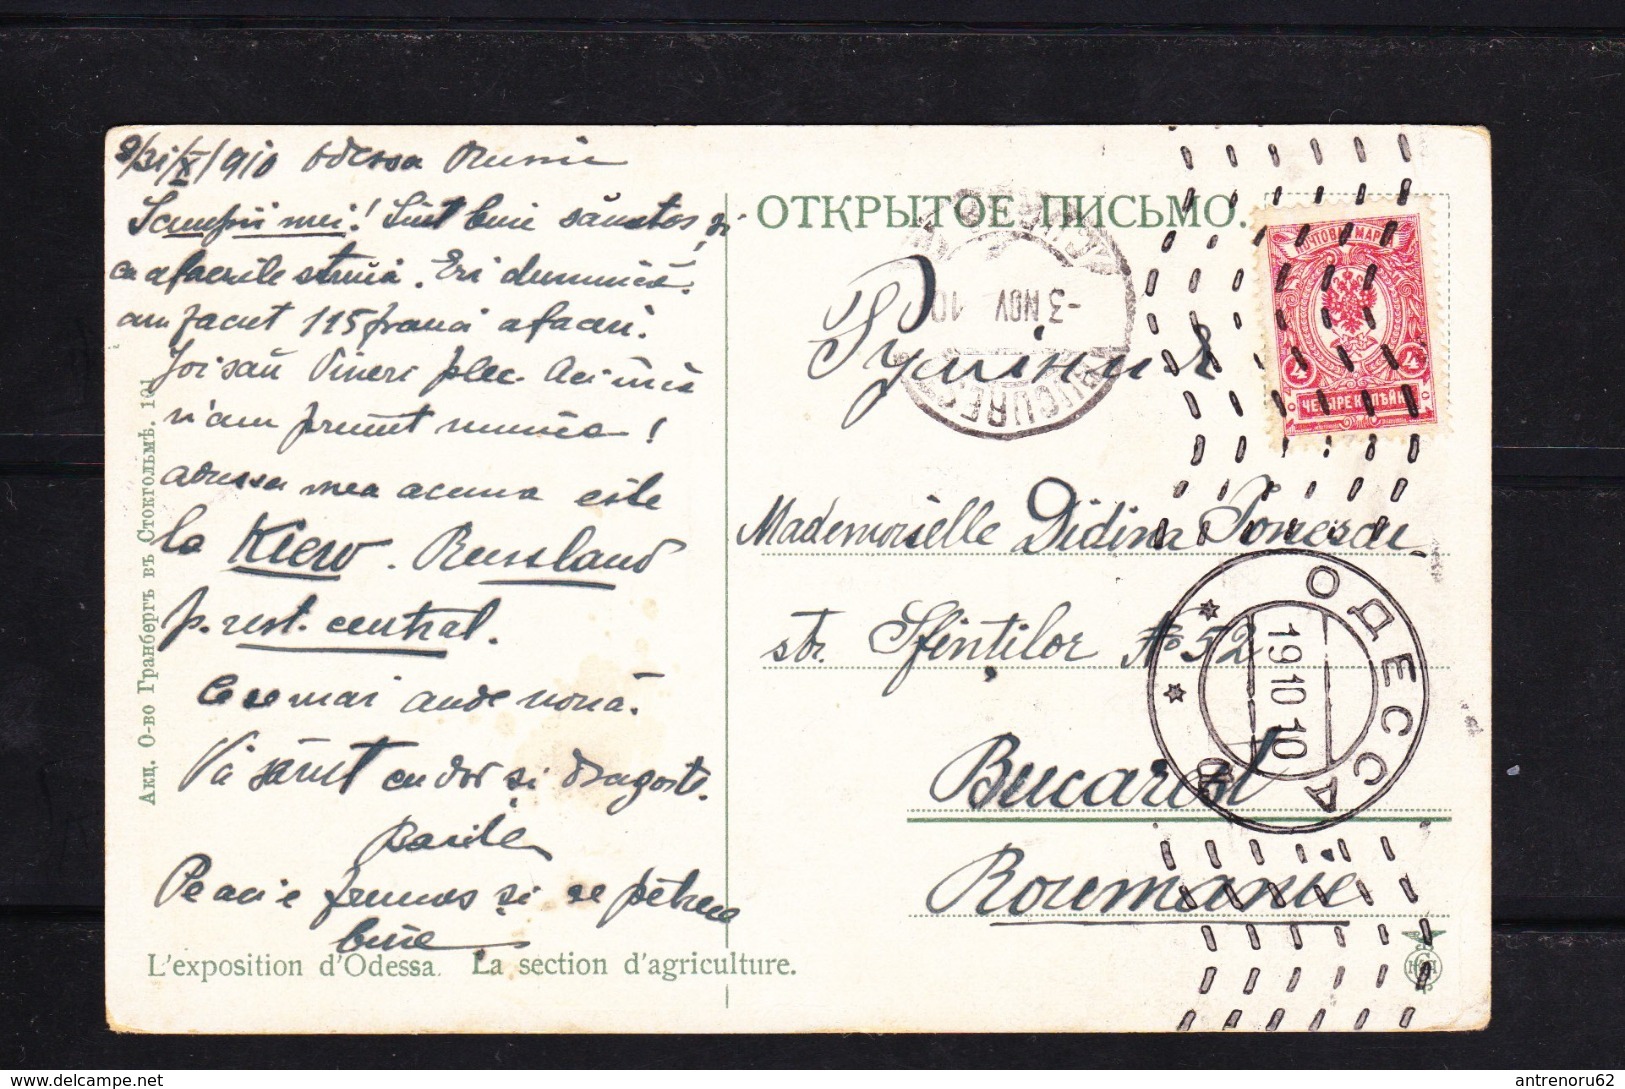 31/X/1910 Odessa Rusia
Scumpii mei! Sunt bine sănătos, și
cu afacerile strună. Eri dumineca
am facut 115 franci afaceri.
Joi sau Vineri plec. Aci încă
n'am primit nimica!
adressa mea acuma este
la Kiew. Russland
p. rest. central.
Ce se mai aude nouă.
Vă sărut cu dor și dragoste.
Vasile
Pe aci e frumos și se petrece
bine
L'exposition d'Odessa. La section d'agriculture.
Акц. О-во Гранбергъ въ Стокгольмѣ. 101
ОТКРЫТОЕ ПИСЬМО.
BUCUREST
-3 NOV 10
ПОЧТОВАЯ МАРКА
4 4
ЧЕТЫРЕ КОПѢЙКИ
Румінія
Mademoiselle Didina Ionescu
str. Sfinților No 52
Bucarest
Roumanie
ОДЕССА
19 10 10
antrenoru62